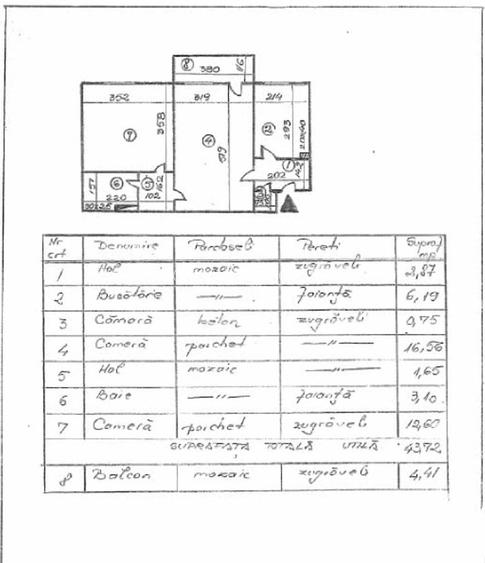 8
380
116
352
319
214
358
7
4
519
2
293
1
202
157
6
5
162
220
102
Nr crt Denumire Pardoseli Pereti Supraf mp.
1 Hol mozaic zugrăveli 2,87
2 Bucătărie —"— faianță 6,19
3 Cămară beton zugrăveli 0,75
4 Cameră parchet —"— 16,56
5 Hol mozaic —"— 1,65
6 Baie —"— faianță 3,10
7 Cameră parchet zugrăveli 12,60
SUPRAFAȚA TOTALĂ UTILĂ 43,72
8 Balcon mozaic zugrăveli 4,41